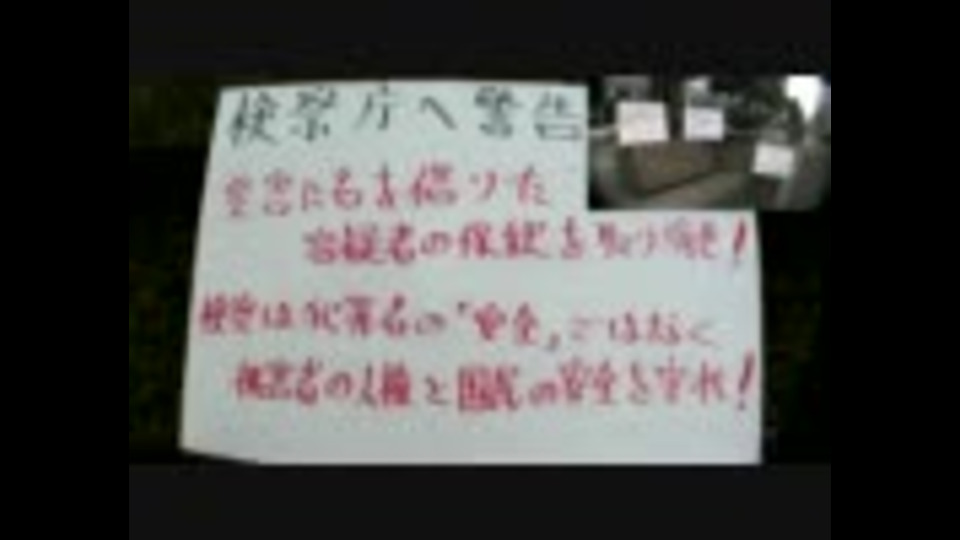 検察庁へ警告
に名を借りた
容疑者の保釈を取り消せ!
検察は犯罪者の「安全」ではなく
被害者の人権と国民の安全を守れ!